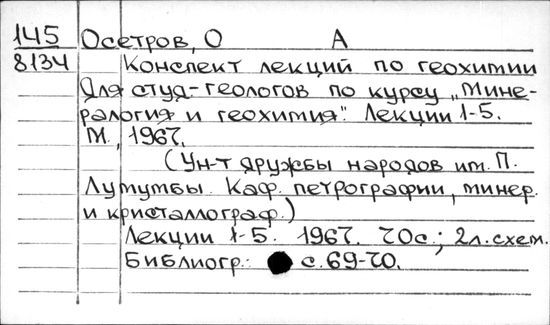 145 Осетров, О А
8134 Конспект лекций по геохимии
для студ-геологов по курсу „Мине-
ралогия и геохимия". Лекции 1-5.
М., 1967.
(Ун-т дружбы народов им. П.
Лумумбы. Каф. петрографии, минер.
и кристаллограф.)
Лекции 1-5. 1967. 70с.; 2л.схем.
Библиогр.: с. 69-70.